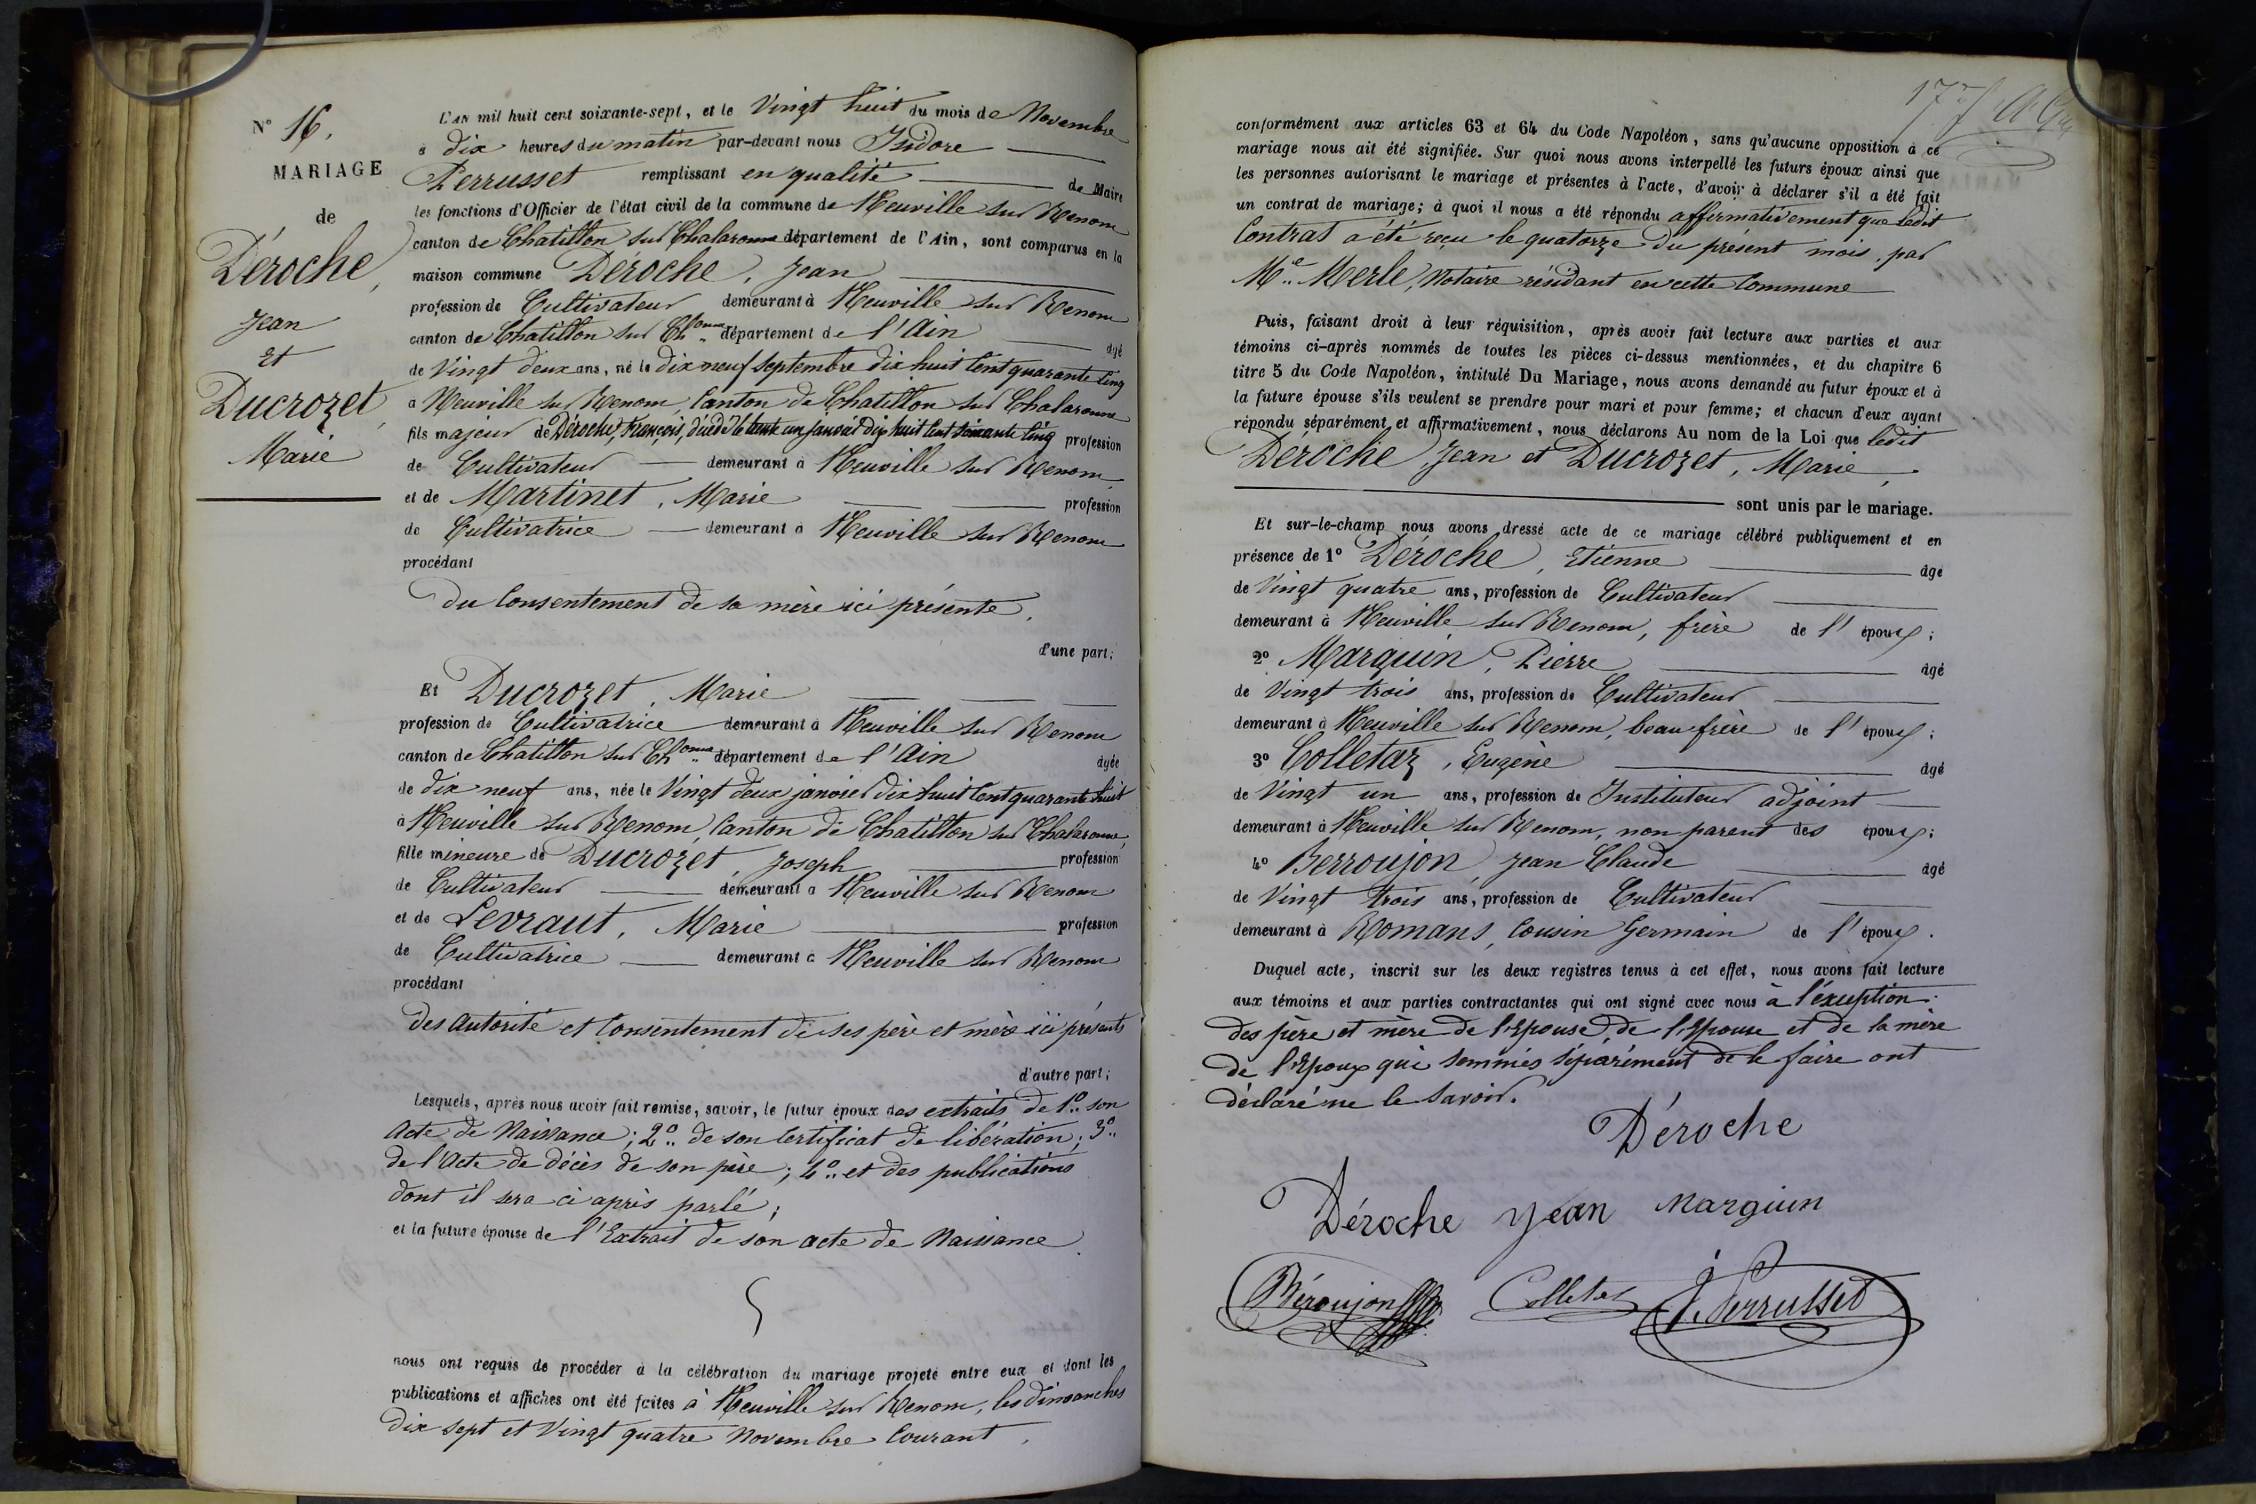 N° 16.
MARIAGE
de
Déroche,
Jean
Et
Ducrozet,
Marie
L'AN mil huit cent soixante-sept, et le Vingt huit du mois de Novembre
à dix heures du matin par-devant nous Isidore
Perrusset remplissant en qualité de Maire
les fonctions d'Officier de l'état civil de la commune de Neuville sur Renom
canton de Chatillon sur Chalaronne département de l'Ain, sont comparus en la
maison commune Déroche, Jean
profession de Cultivateur demeurant à Neuville sur Renom
canton de Chatillon sur Chonne département de l'Ain âgé
de Vingt deux ans, né le dix neuf Septembre dix huit Cent quarante Cinq
à Neuville sur Renom, Canton de Chatillon sur Chalaronne
fils majeur de Déroche, François, décédé le trente un janvier dix huit Cent soixante Cinq profession
de Cultivateur demeurant à Neuville sur Renom
et de Martinet, Marie profession
de Cultivatrice demeurant à Neuville sur Renom
procédant
du Consentement de sa mère ici présente.
d'une part;
Et Ducrozet, Marie
profession de Cultivatrice demeurant à Neuville sur Renom
canton de Chatillon sur Chonne département de l'Ain âgée
de dix neuf ans, née le Vingt deux janvier dix huit Cent quarante huit
à Neuville sur Renom, Canton de Chatillon sur Chalaronne,
fille mineure de Ducrozet, Joseph profession
de Cultivateur demeurant à Neuville sur Renom
et de Levraut, Marie profession
de Cultivatrice demeurant à Neuville sur Renom
procédant
des autorité et Consentement de ses père et mère ici présents
d'autre part;
Lesquels, après nous avoir fait remise, savoir, le futur époux des extraits de 1° son
Acte de Naissance; 2° de son Certificat de libération; 3°
de l'Acte de décès de son père; 4° et des publications
dont il sera ci après parlé;
et la future épouse de l'Extrait de son acte de Naissance.
nous ont requis de procéder à la célébration du mariage projeté entre eux et dont les
publications et affiches ont été faites à Neuville sur Renom, les dimanches
dix sept et Vingt quatre Novembre Courant.
conformément aux articles 63 et 64 du Code Napoléon, sans qu'aucune opposition à ce
mariage nous ait été signifiée. Sur quoi nous avons interpellé les futurs époux ainsi que
les personnes autorisant le mariage et présentes à l'acte, d'avoir à déclarer s'il a été fait
un contrat de mariage; à quoi il nous a été répondu affirmativement que ledit
Contrat a été reçu le quatorze du présent mois, par
Me Merle, Notaire résidant en cette Commune
Puis, faisant droit à leur réquisition, après avoir fait lecture aux parties et aux
témoins ci-après nommés de toutes les pièces ci-dessus mentionnées, et du chapitre 6
titre 5 du Code Napoléon, intitulé Du Mariage, nous avons demandé au futur époux et à
la future épouse s'ils veulent se prendre pour mari et pour femme; et chacun d'eux ayant
répondu séparément et affirmativement, nous déclarons Au nom de la Loi que ledit
Déroche, Jean et Ducrozet, Marie,
sont unis par le mariage.
Et sur-le-champ nous avons dressé acte de ce mariage célébré publiquement et en
présence de 1° Déroche, Etienne âgé
de Vingt quatre ans, profession de Cultivateur
demeurant à Neuville sur Renom, frère de l' époux;
2° Marguin, Pierre âgé
de Vingt trois ans, profession de Cultivateur
demeurant à Neuville sur Renom, beau frère de l' époux;
3° Colletaz, Eugène âgé
de Vingt un ans, profession de Instituteur adjoint
demeurant à Neuville sur Renom, non parent des époux;
4° Berroujon, Jean Claude âgé
de Vingt trois ans, profession de Cultivateur
demeurant à Romans, Cousin Germain de l' époux.
Duquel acte, inscrit sur les deux registres tenus à cet effet, nous avons fait lecture
aux témoins et aux parties contractantes qui ont signé avec nous à l'exeuption
des père et mère de l'Epouse, de l'Epouse et de la mère
de l'Epoux qui sommés séparément de le faire ont
déclaré ne le Savoir.
Déroche
Déroche Jean Marguin
Béroujon Colletaz I. Perrusset